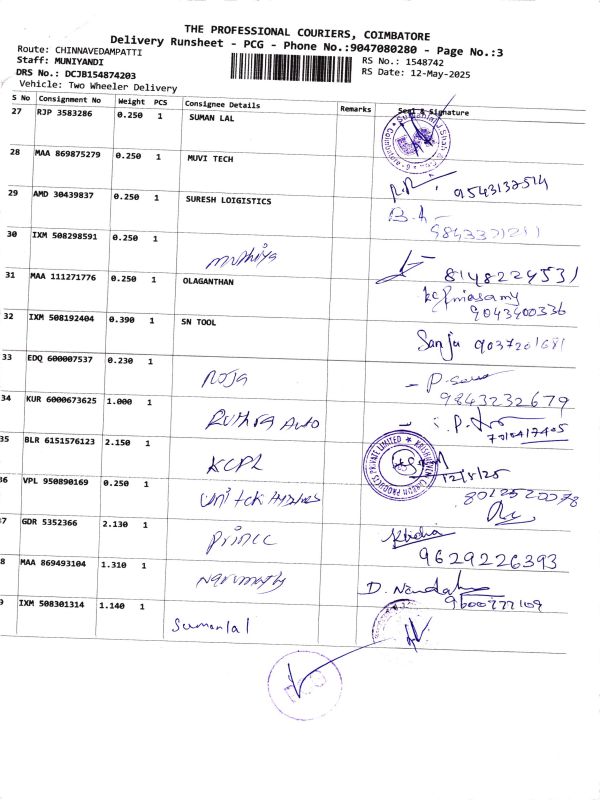 THE PROFESSIONAL COURIERS, COIMBATORE
Delivery Runsheet - PCG - Phone No.:9047080280 - Page No.:3
Route: CHINNAVEDAMPATTI
Staff: MUNIYANDI
RS No.: 1548742
DRS No.: DCJB154874203
RS Date: 12-May-2025
Vehicle: Two Wheeler Delivery
S No Consignment No Weight PCS Consignee Details Remarks Seal & Signature
27 RJP 3583286 0.250 1 SUMAN LAL
28 MAA 869875279 0.250 1 MUVI TECH
9543132514
29 AMD 30439837 0.250 1 SURESH LOIGISTICS
B.A
9843321211
30 IXM 508298591 0.250 1 muthiya
8148224531
31 MAA 111271776 0.250 1 OLAGANTHAN
9043400336
32 IXM 508192404 0.390 1 SN TOOL
Sanju 9037201681
33 EDQ 600007537 0.230 1 Roja
9843232679
34 KUR 6000673625 1.000 1 Ruthra Auto
35 BLR 6151576123 2.150 1 KCPL
12/5/25
6 VPL 950890169 0.250 1
8012520078
7 GDR 5352366 2.130 1 Prince
9629226393
8 MAA 869493104 1.310 1
D.
9600777109
9 IXM 508301314 1.140 1 Sumanlal